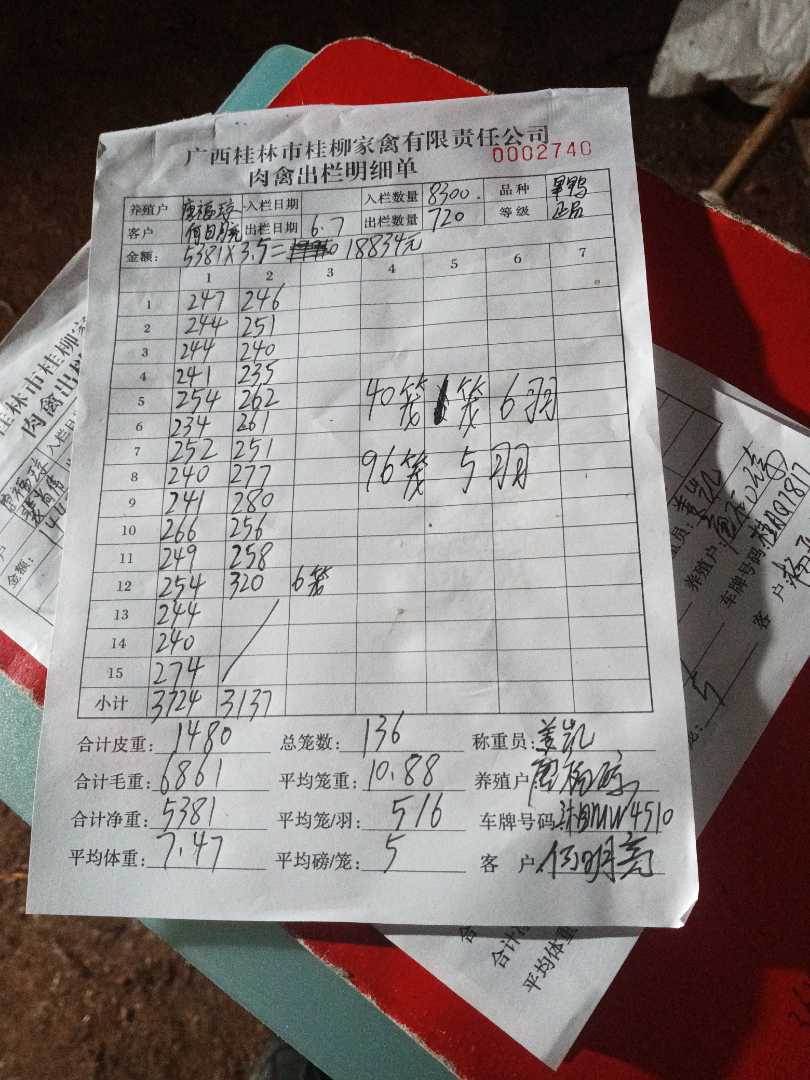 广西桂林市桂柳家禽有限责任公司
肉禽出栏明细单 0002740
养殖户 入栏日期 入栏数量 8300. 品种 旱鸭
客户 出栏日期 6.7 出栏数量 720 等级 正品
金额: 5381×3.5= 18834元
1 2 3 4 5 6 7
1 247 246
2 244 251
3 244 240
4 241 235
5 254 262 40笼 笼 6羽
6 234 261
7 252 251
8 240 277 96笼 5羽
9 241 280
10 266 256
11 249 258
12 254 320 6笼
13 244
14 240
15 274
小计 3724 3137
合计皮重: 1480 总笼数: 136 称重员: 姜凯
合计毛重: 6861 平均笼重: 10.88 养殖户
合计净重: 5381 平均笼/羽: 516 车牌号码:
平均体重: 7.47 平均磅/笼: 5 客户 何明亮
桂林市桂柳家
肉禽出栏
入栏日
金额:
养殖户:
车牌号码:
客户
平均体重